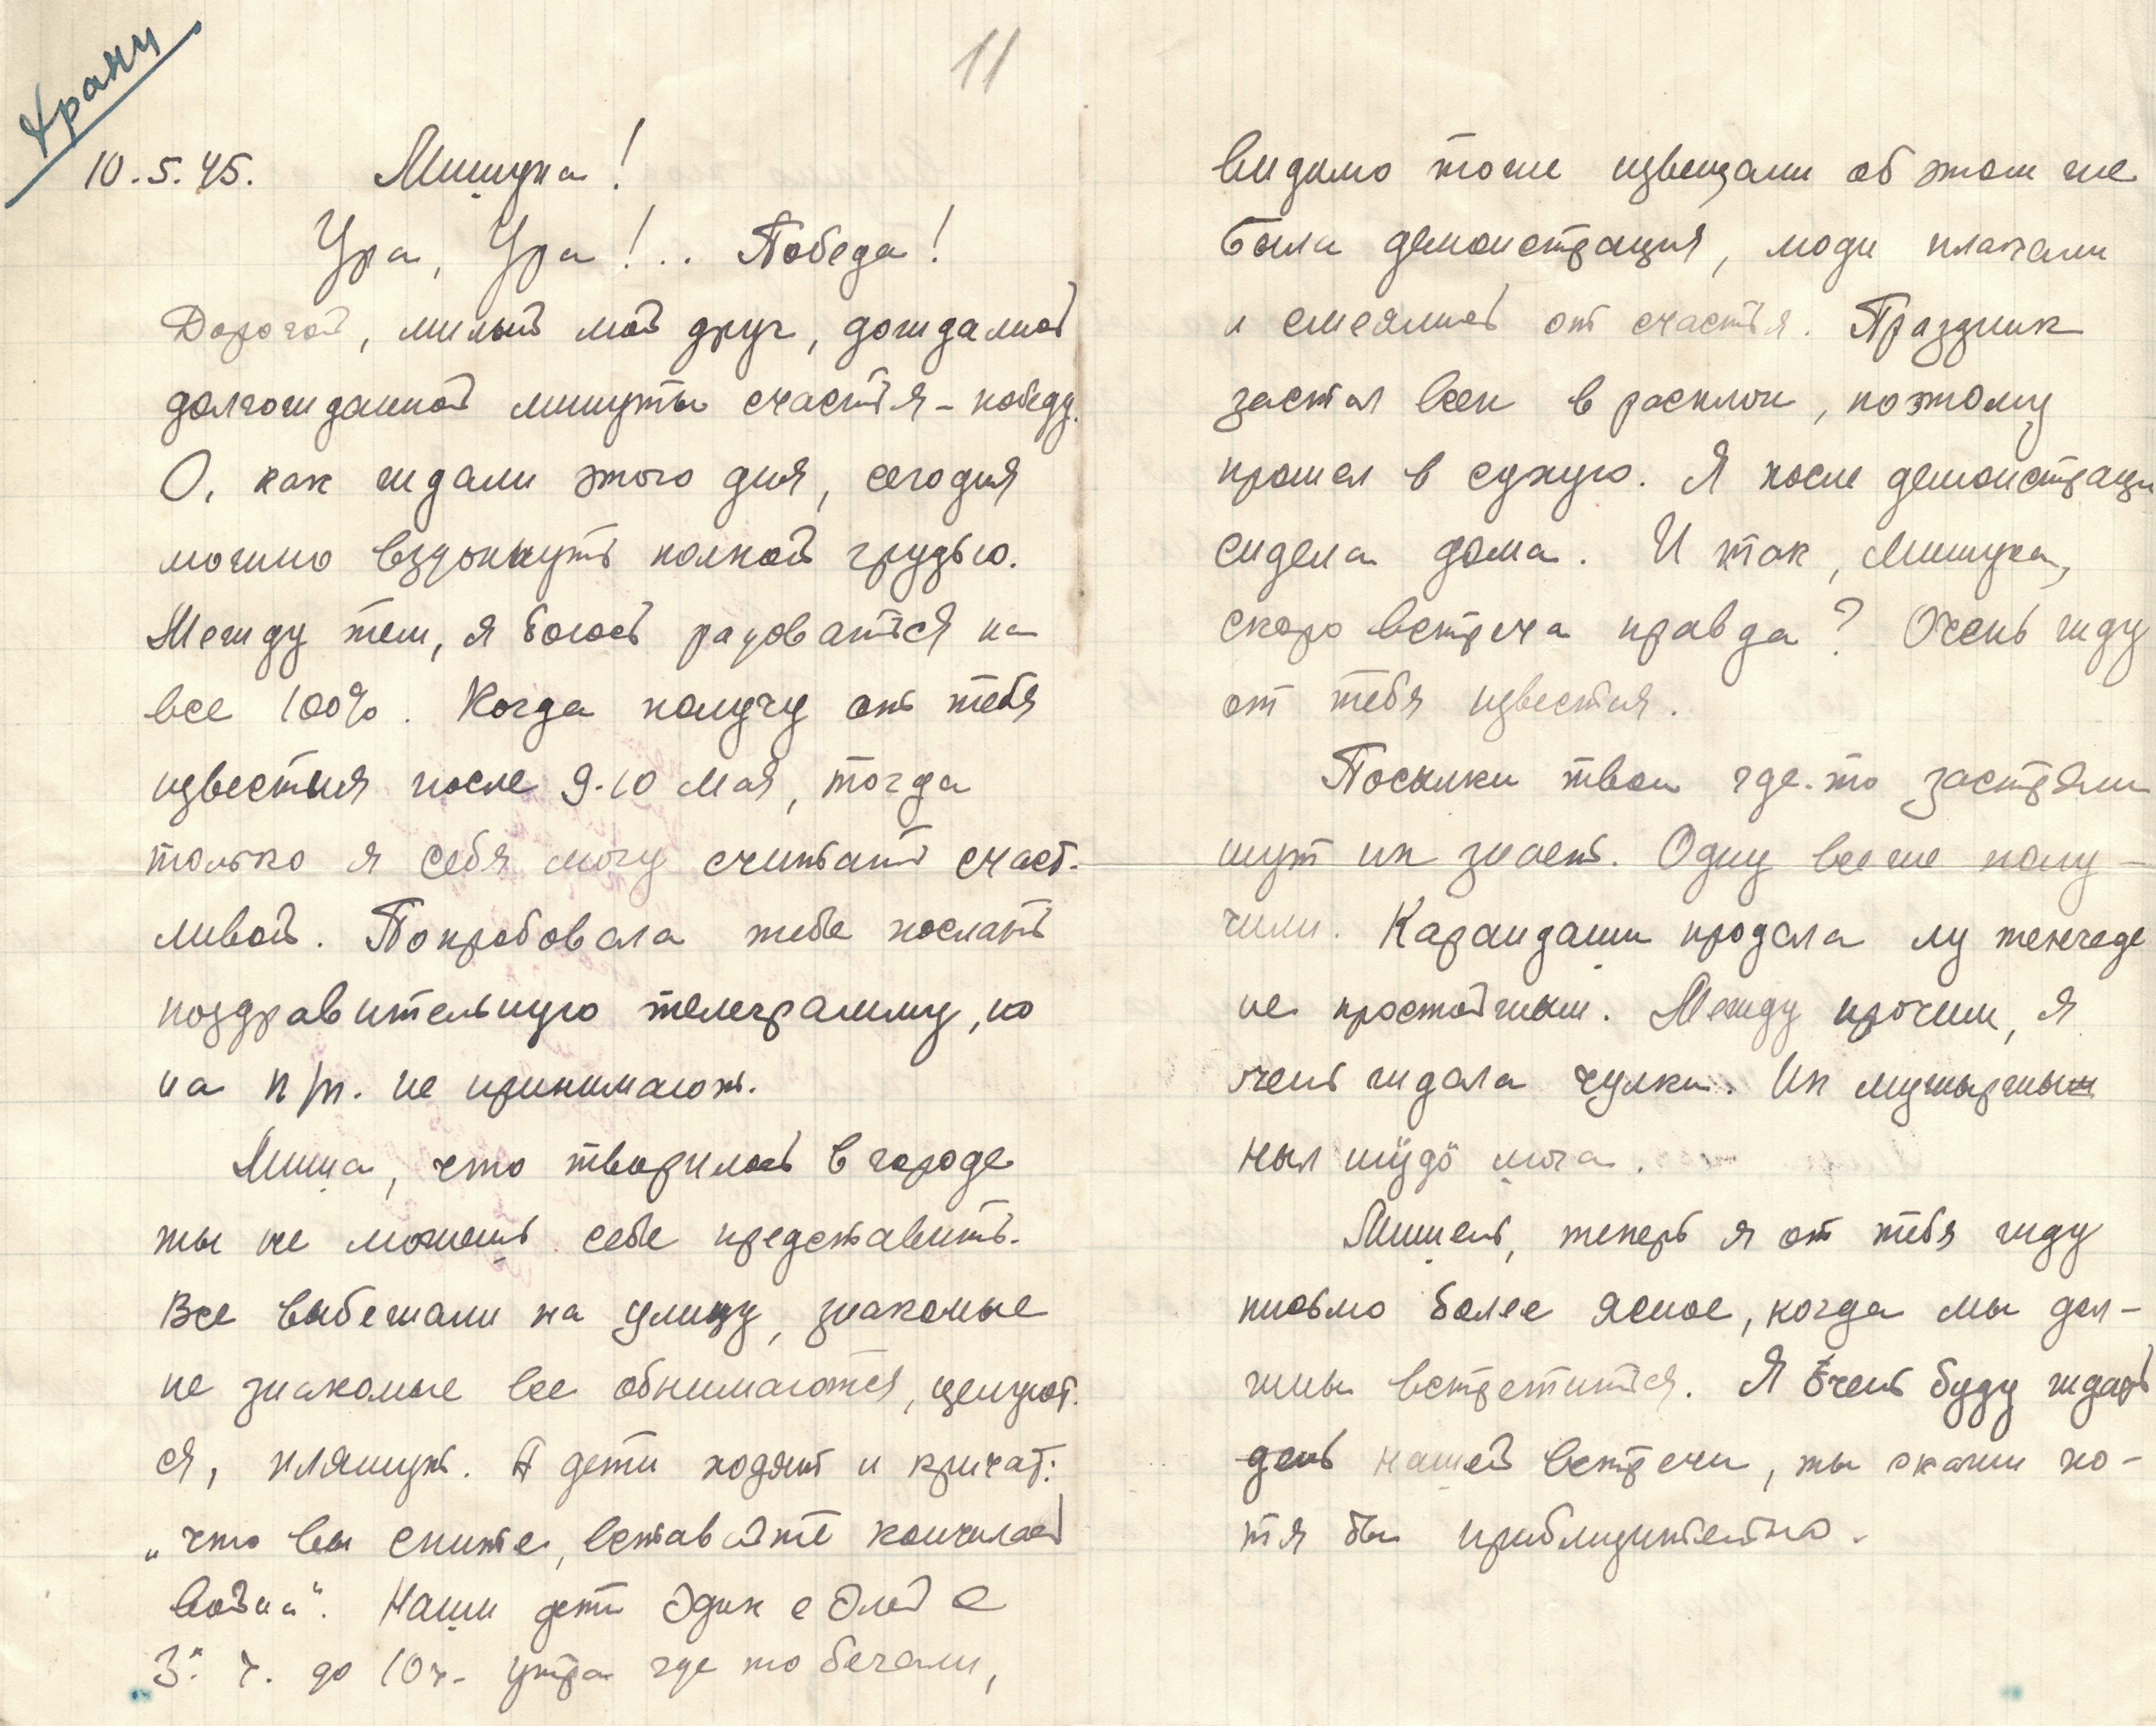 Храни
11
10.5.45. Мишука!
Ура, Ура!.. Победа!
Дорогой, милый мой друг, дождались
долгожданной минуты счастья - победу.
О, как ждали этого дня, сегодня
можно вздохнуть полной грудью.
Между тем, я боюсь радоваться на
все 100%. Когда получу от тебя
известия после 9-10 мая, тогда
только я себя могу считать счаст-
ливой. Попробовала тебе послать
поздравительную телеграмму, но
на п/п. не принимают.
Миша, что творилось в городе
ты не можешь себе представить.
Все выбежали на улицу, знакомые
не знакомые все обнимаются, целуют-
ся, пляшут. А дети ходят и кричат:
„что вы спите, вставайте кончилась
война". Наши дети Эдик с Элей с
3х ч. до 10 ч. утра где то бегали,
видимо тоже извещали об этом же
Была демонстрация, люди плакали
и смеялись от счастья. Праздник
застал всех в расплох, поэтому
прошел в сухую. Я после демонстраци
сидела дома. И так, Мишука,
скоро встреча правда? Очень жду
от тебя известия.
Посылки твои где-то застряли
шут их знает. Одну все же полу-
чили. Карандаши продала
не Между прочим, я
очень ждала чулки. Их
ныл шӱдӧ
Мишень, теперь я от тебя жду
письмо более ясное, когда мы дол-
жны встретиться. Я Очень буду ждать
день нашей встречи, ты скажи хо-
тя бы приблизительно.